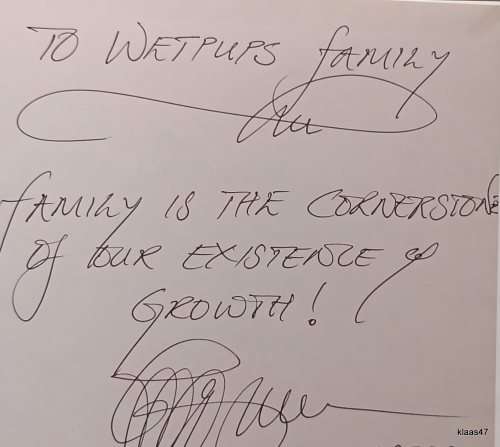 TO WETPUPS FAMILY
FAMILY IS THE CORNERSTONE
OF OUR EXISTENCE &
GROWTH!
klaas47